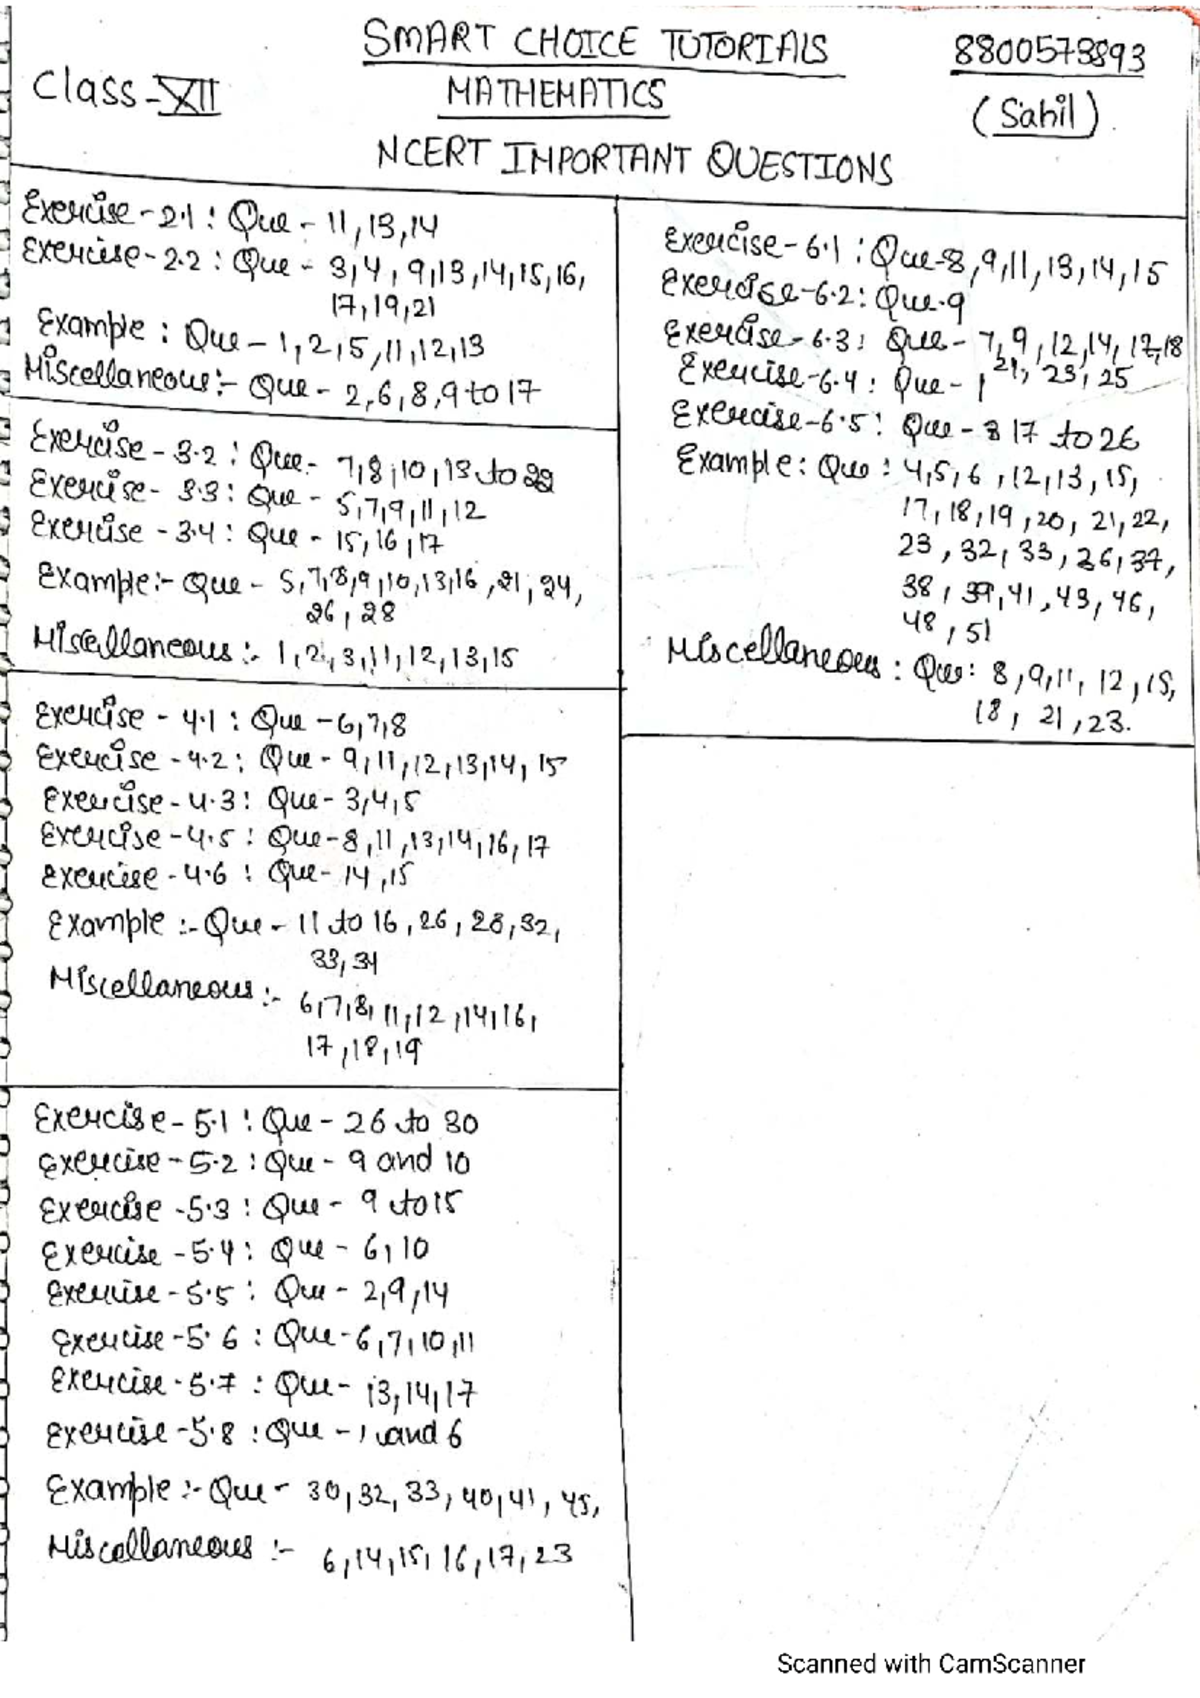 SMART CHOICE TUTORIALS
8800573893
Class-XII
MATHEMATICS
(Sahil)
NCERT IMPORTANT QUESTIONS
Exercise-2.1: Que- 11,13,14
Exercise-2.2: Que - 3,4,9,13,14,15,16,
17,19,21
Example: Que- 1,2,5,11,12,13
Miscellaneous:- Que- 2,6,8,9 to 17
Exercise-3.2: Que- 7,8,10,13 to
Exercise-3.3: Que- 5,7,9,11,12
Exercise-3.4: Que- 15,16,17
Example:- Que- 5,7,8,9,10,13,16,21,24,
26,28
Miscellaneous:- 1,2,3,11,12,13,15
Exercise-4.1: Que-6,7,8
Exercise-4.2: Que-9,11,12,13,14,15
Exercise-4.3: Que-3,4,5
Exercise-4.5: Que-8,11,13,14,16,17
Exercise-4.6: Que-14,15
Example:-Que- 11 to 16,26,28,32,
33,34
Miscellaneous:- 6,7,8,11,12,14,16,
17,18,19
Exercise-5.1: Que-26 to 30
Exercise-5.2: Que-9 and 10
Exercise-5.3: Que-9 to 15
Exercise-5.4: Que-6,10
Exercise-5.5: Que-2,9,14
Exercise-5.6: Que-6,7,10,11
Exercise-5.7: Que-13,14,17
Exercise-5.8: Que-1 and 6
Example:-Que- 30,32,33,40,41,45,
Miscellaneous:- 6,14,15,16,17,23
Exercise-6.1: Que-8,9,11,13,14,15
Exercise-6.2: Que-9
Exercise-6.3: Que-7,9,12,14,17,18
21,23,25
Exercise-6.4: Que-1
Exercise-6.5: Que- 17 to 26
Example: Que: 4,5,6,12,13,15,
17,18,19,20,21,22,
23,32,33,36,37,
38,39,41,43,46,
48,51
Miscellaneous: Que: 8,9,11,12,15,
18,21,23.
Scanned with CamScanner